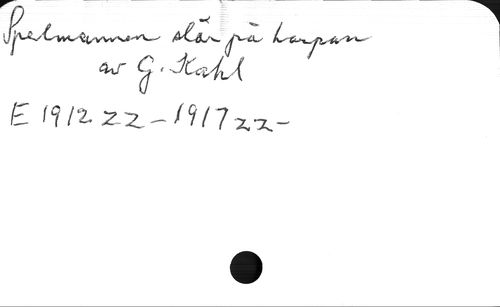 Spelmannen slår på harpan
av G. Kahl
E 1912 zz - 1917 zz -